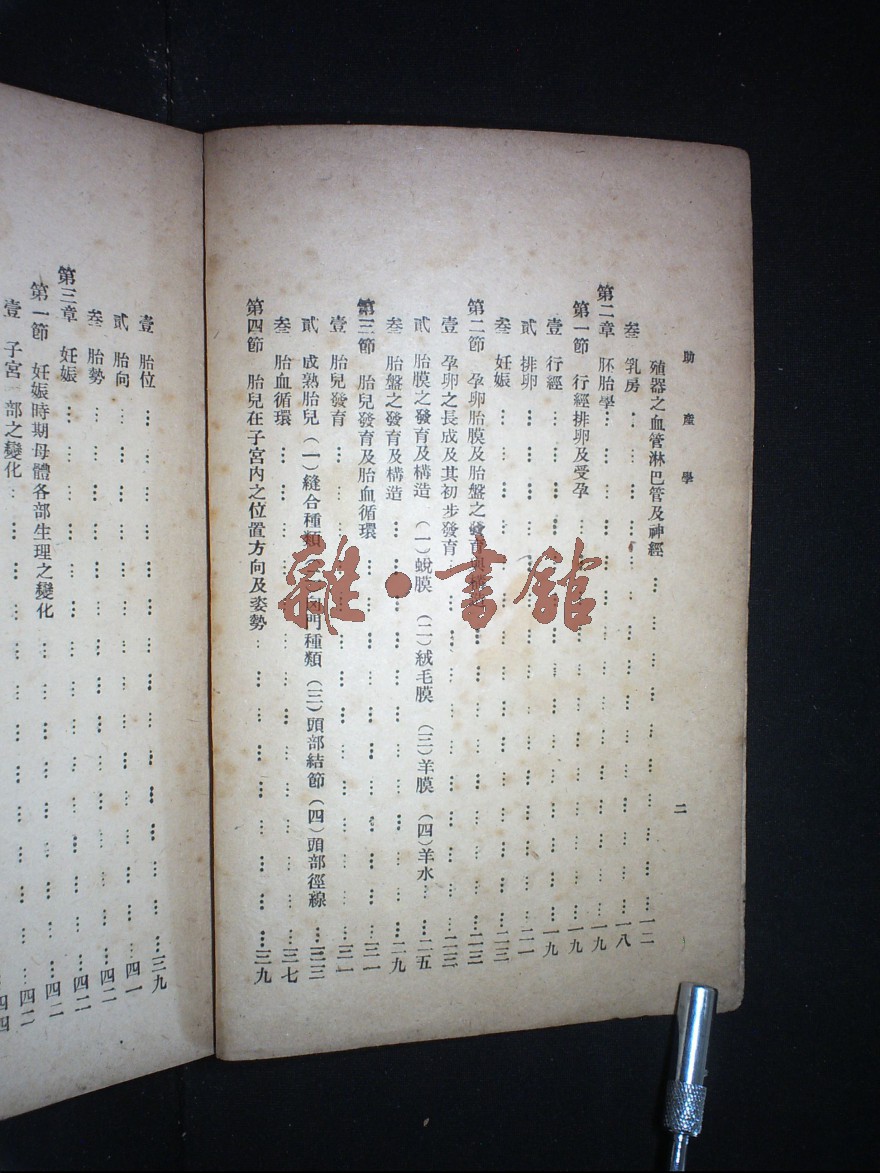 助產學
二
殖器之血管淋巴管及神經…………一二
叁 乳房…………一八
第二章 胚胎學…………一九
第一節 行經排卵及受孕…………一九
壹 行經…………一九
貳 排卵…………二一
叁 妊娠…………二三
第二節 孕卵胎膜及胎盤之發育…………二三
壹 孕卵之長成及其初步發育…………二三
貳 胎膜之發育及構造 (一)蛻膜 (二)絨毛膜 (三)羊膜 (四)羊水…二五
叁 胎盤之發育及構造…………二九
第三節 胎兒發育及胎血循環…………三一
壹 胎兒發育…………三一
貳 成熟胎兒(一)縫合種類 門種類(三)頭部結節(四)頭部徑線…三三
叁 胎血循環…………三七
第四節 胎兒在子宮內之位置方向及姿勢…………三九
壹 胎位…………三九
貳 胎向…………四一
叁 胎勢…………四二
第三章 妊娠…………四二
第一節 妊娠時期母體各部生理之變化…………四二
壹 子宮 部之變化…………四四
雜·書館